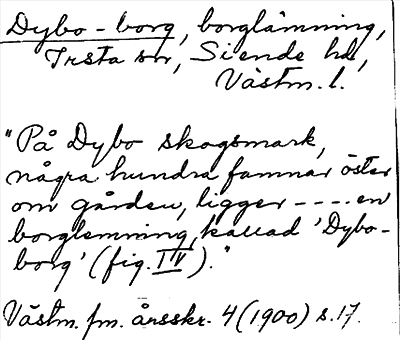 Dybo-borg, borglämning,
Irsta sn, Siende hd,
Västm. l.
"På Dybo skogsmark,
några hundra famnar öster
om gården, ligger ---- en
borglemning, kallad 'Dybo-
borg' (fig. IV)."
Västm. fm. årsskr. 4 (1900) s. 17.